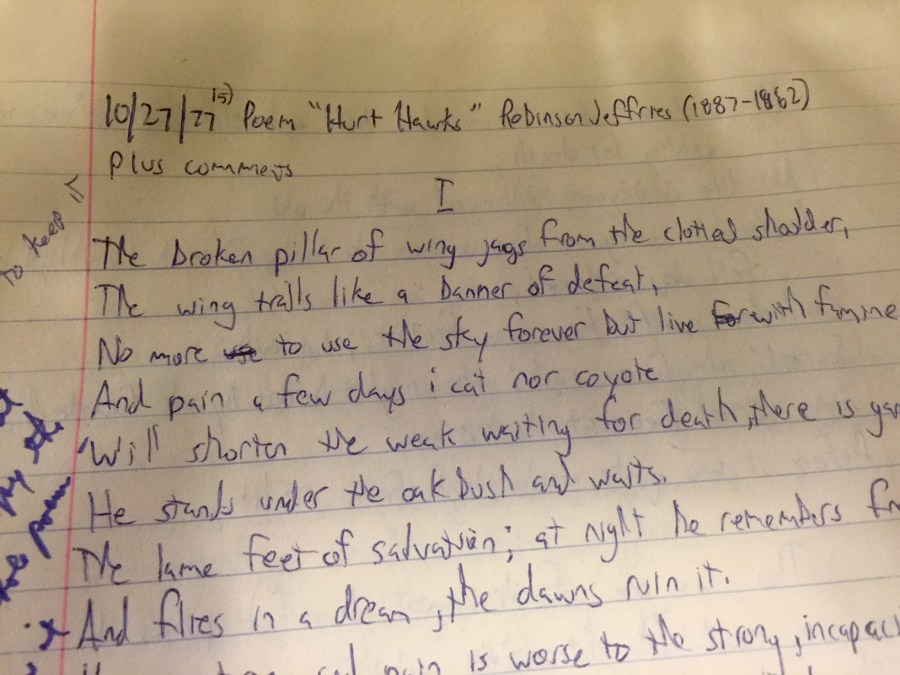 10/27/77 15) Poem "Hurt Hawks" Robinson Jeffries (1887-1962)
Plus comments
I
to keep
The broken pillar of wing jags from the clotted shoulder,
The wing trails like a banner of defeat,
No more to use the sky forever but live with famine
And pain a few days ; cat nor coyote
Will shorten the weak waiting for death, there is gam
He stands under the oak bush and waits.
the poem
The lame feet of salvation; at night he remembers fr
And flies in a dream, the dawns ruin it.
pain is worse to the strong, incapaci